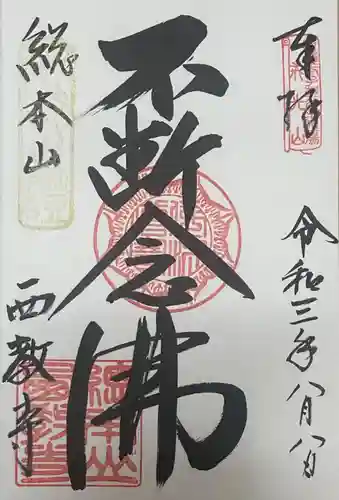 奉拝
令和三年八月八日
不断念佛
総本山
西教寺